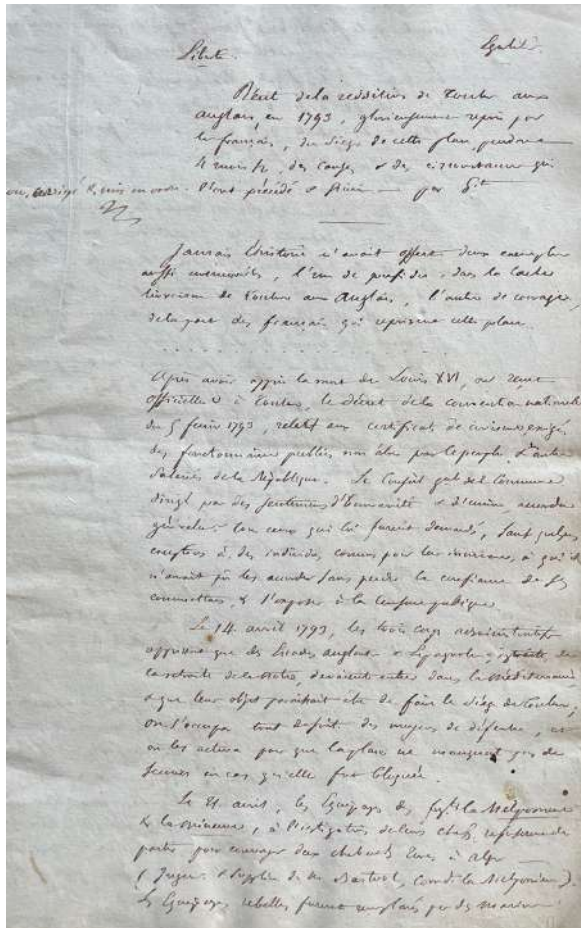 Liberté. Egalité.
Récit de la reddition de Toulon aux
anglais, en 1793, glorieusement repris par
les français, du siège de cette place, pendant
4 mois ½, des causes & des circonstances qui
corrigé & mis en ordre. l'ont précédé & suivi — par
Jamais l'histoire n'avait offert deux exemples
aussi mémorables, l'un de perfidie, dans la lâche
livraison de Toulon aux Anglais, l'autre de courage,
de la part des français qui reprirent cette place.
Après avoir appris la mort de Louis XVI, on reçut
officiellemt à Toulon, le décret de la convention nationale
du 5 février 1793, relatif aux certificats de civisme exigés
des fonctionnaires publics non élus par le peuple & autres
salariés de la République. Le Conseil gal de la Commune
dirigé par des sentimens d'humanité & d'union, accorda
à tous ceux qui lui furent demandés, sauf quelques
exceptions à des individus connus pour leur incivisme, à qui il
n'aurait pû les accorder sans perdre la confiance de ses
commettans, & s'exposer à la censure publique.
Le 14 avril 1793, les trois corps administratifs
apprirent que des Escadres anglaise & Espagnole, de
la retraite de la nôtre, devaient entrer dans la Méditerranée
& que leur objet paraissait être de faire le siège de Toulon,
on s'occupa tout de suite des moyens de défense,
on les activa pour que la place ne manquât pas de
secours en cas qu'elle fut bloquée.
Le 21 avril, les Equipages des frég.tes la Melpomène
& la Minerve, à l'instigation de leurs chefs, refusèrent de
partir pour convoyer deux chebecks à alger —
(Jugemt & supplice de comdt la Melpomène).
Les Equipages rebelles furent remplacés par des marins